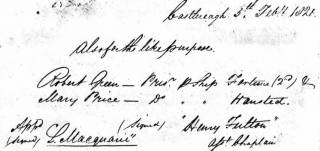 Castlereagh 5th Feby 1821.
Also for the like purpose.
Robert Green — Pris.r p Ship Fortune (2d) &
Mary Price — Do " " Wanstead.
Appd (signed) "Henry Fulton"
(signed) "L. Macquarie" Asst Chaplain